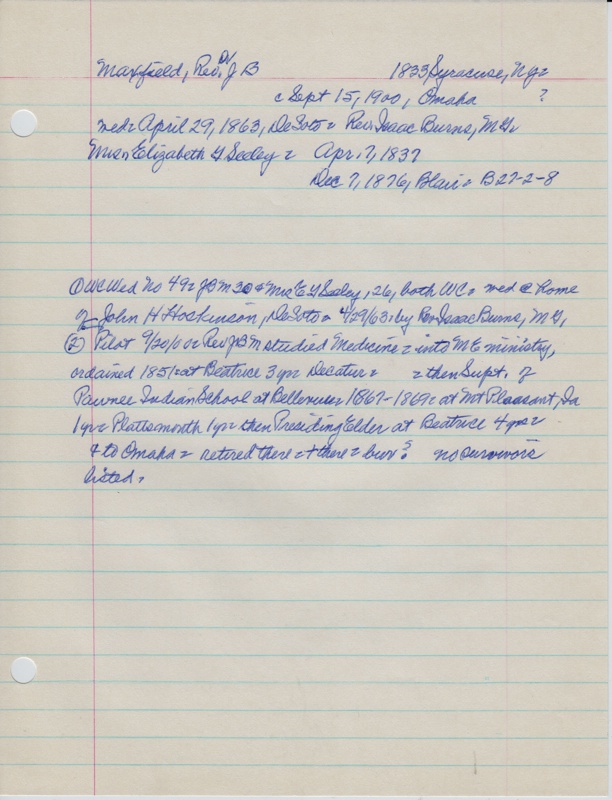 Maxfield, Rev. Dr J B 1833 Syracuse, Ny=
c Sept 15, 1900, Omaha ?
med= April 29, 1863, DeSoto = Rev. Isaac Burns, M.G.
Miss Elizabeth Y Seeley = Apr. 7, 1837
Dec 7, 1876, Blair = B27-2-8
① WC Wed No 49= JBM 30 & Miss E Y Seeley, 26, both WC = med @ Home
of John H Hoskinson, DeSoto = 4/29/63: by Rev Isaac Burns, M G,
② Pilot 9/20/00 = Rev JBM studied Medicine = into M E ministry,
ordained 1851 = at Beatrice 3 yr= Decatur = = then Supt. of
Pawnee Indian School at Bellevue= 1867-1869= at Mt Pleasant, Ia
1 yr= Plattsmouth 1 yr= then Presiding Elder at Beatrice 4 yrs=
& to Omaha = retired there = + there = bur? no survivors
listed.